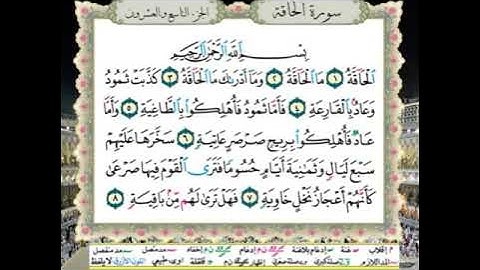 سورة الحاقة
الجزء التاسع والعشرون
بِسْمِ ٱللَّهِ ٱلرَّحْمَٰنِ ٱلرَّحِيمِ
ٱلْحَاقَّةُ ١ مَا ٱلْحَاقَّةُ ٢ وَمَآ أَدْرَىٰكَ مَا ٱلْحَاقَّةُ ٣ كَذَّبَتْ ثَمُودُ
وَعَادٌۢ بِٱلْقَارِعَةِ ٤ فَأَمَّا ثَمُودُ فَأُهْلِكُوا۟ بِٱلطَّاغِيَةِ ٥ وَأَمَّا
عَادٌ فَأُهْلِكُوا۟ بِرِيحٍ صَرْصَرٍ عَاتِيَةٍ ٦ سَخَّرَهَا عَلَيْهِمْ
سَبْعَ لَيَالٍ وَثَمَٰنِيَةَ أَيَّامٍ حُسُومًا فَتَرَى ٱلْقَوْمَ فِيهَا صَرْعَىٰ
كَأَنَّهُمْ أَعْجَازُ نَخْلٍ خَاوِيَةٍ ٧ فَهَلْ تَرَىٰ لَهُم مِّنۢ بَاقِيَةٍ ٨